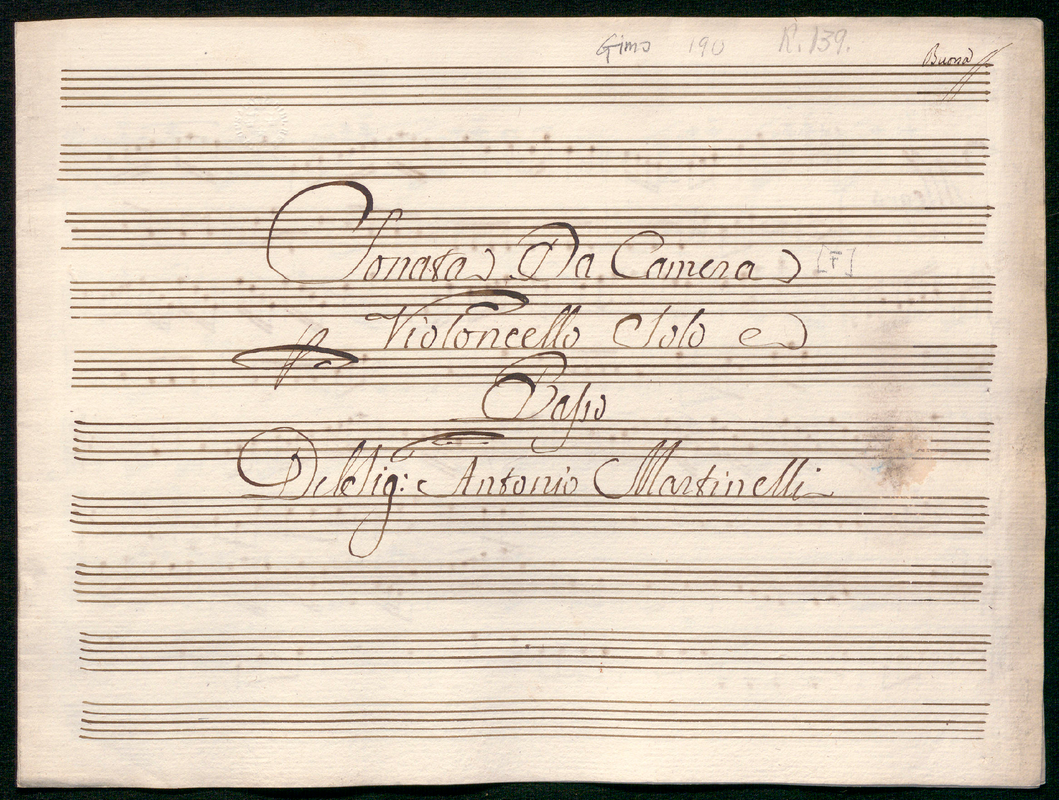 Gimo 190 R. 139.
Buona
Sonata Da Camera [F]
Violoncello Solo e
Basso
Del Sig: Antonio Martinelli